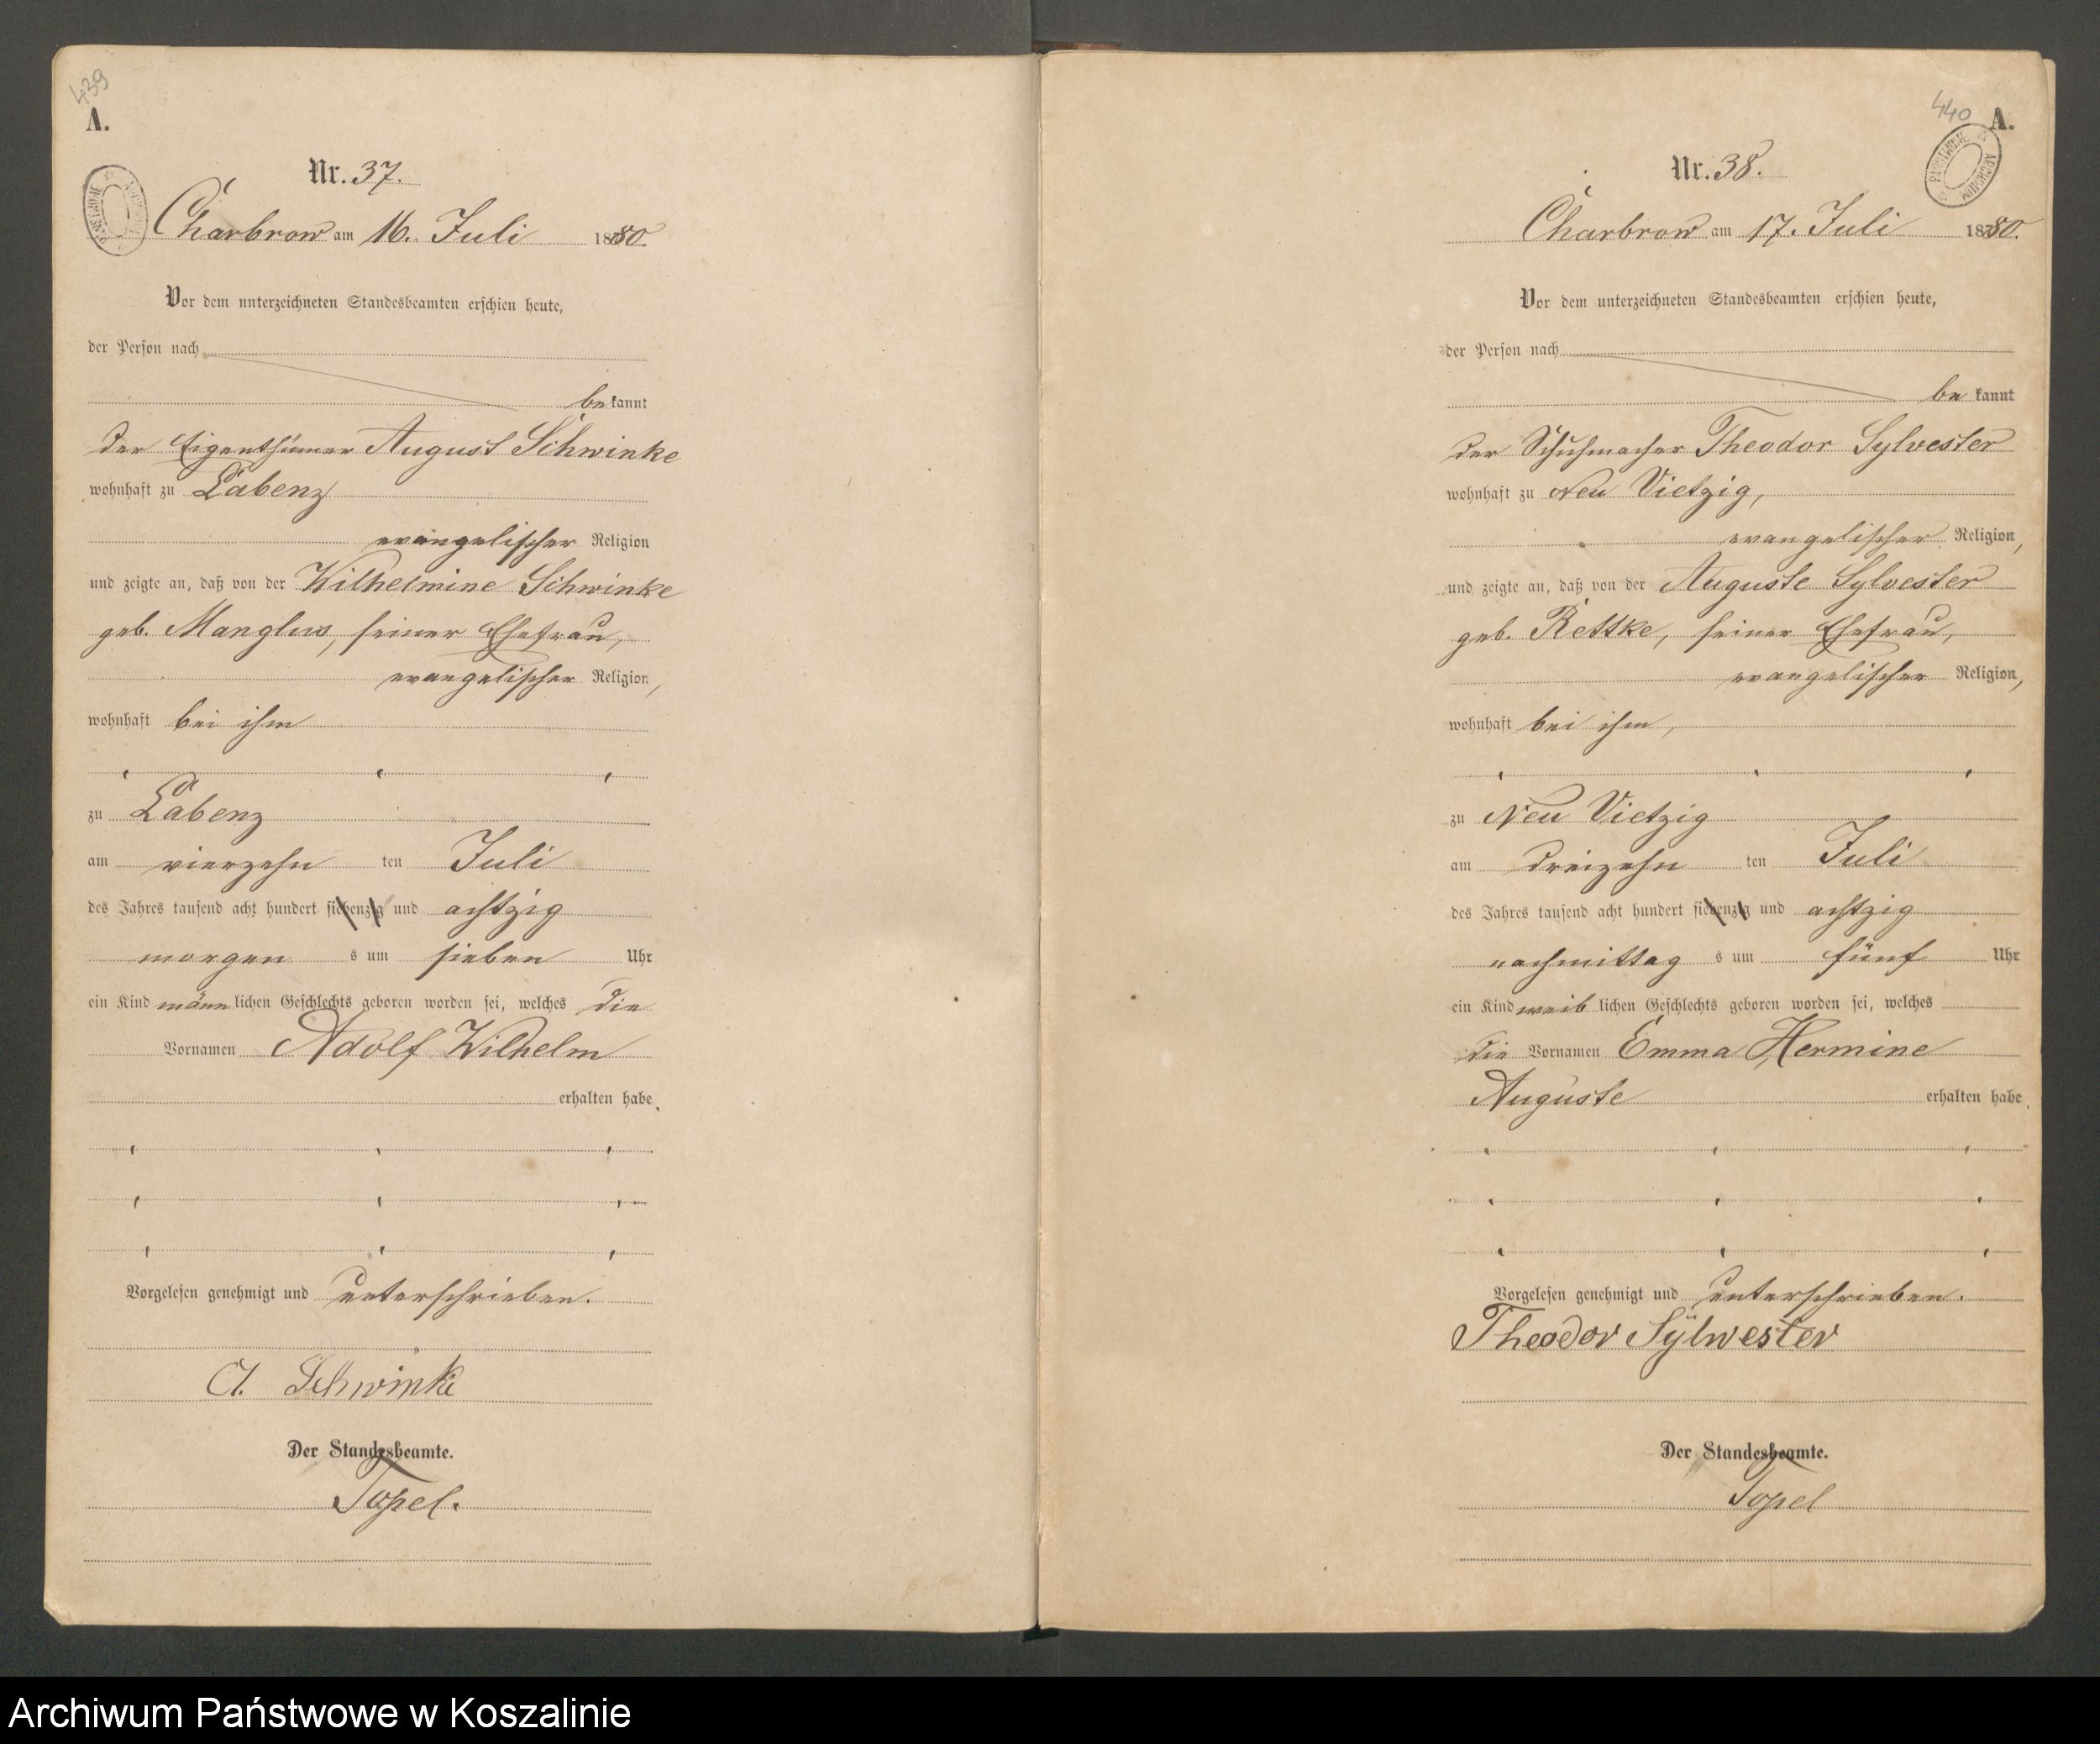 439
A.
Nr. 37.
Charbrow am 16. Juli 1880.
Vor dem unterzeichneten Standesbeamten erschien heute,
der Person nach
bekannt
der Eigenthümer August Schwinke
wohnhaft zu Labenz
evangelischer Religion
und zeigte an, daß von der Wilhelmine Schwinke
geb. Manglus, seiner Ehefrau,
evangelischer Religion,
wohnhaft bei ihm
zu Labenz
am vierzehn ten Juli
des Jahres tausend acht hundert siebenzig und achtzig
morgen s um sieben Uhr
ein Kind männlichen Geschlechts geboren worden sei, welches die
Vornamen Adolf Wilhelm
erhalten habe.
Vorgelesen genehmigt und unterschrieben.
A. Schwinke
Der Standesbeamte.
Topel.
440
A.
ARCHIWUM PAŃSTWOWE
Nr. 38.
Charbrow am 17. Juli 1880.
Vor dem unterzeichneten Standesbeamten erschien heute,
der Person nach
be kannt
der Schuhmacher Theodor Sylvester
wohnhaft zu Neu Vietzig,
evangelischer Religion,
und zeigte an, daß von der Auguste Sylvester
geb. Rettke, seiner Ehefrau,
evangelischer Religion,
wohnhaft bei ihm,
zu Neu Vietzig
am dreizehn ten Juli
des Jahres tausend acht hundert siebenzig und achtzig
nachmittag s um fünf Uhr
ein Kind weiblichen Geschlechts geboren worden sei, welches
die Vornamen Emma Hermine
Auguste erhalten habe.
Vorgelesen genehmigt und unterschrieben.
Theodor Sÿlwester
Der Standesbeamte.
Topel
Archiwum Państwowe w Koszalinie